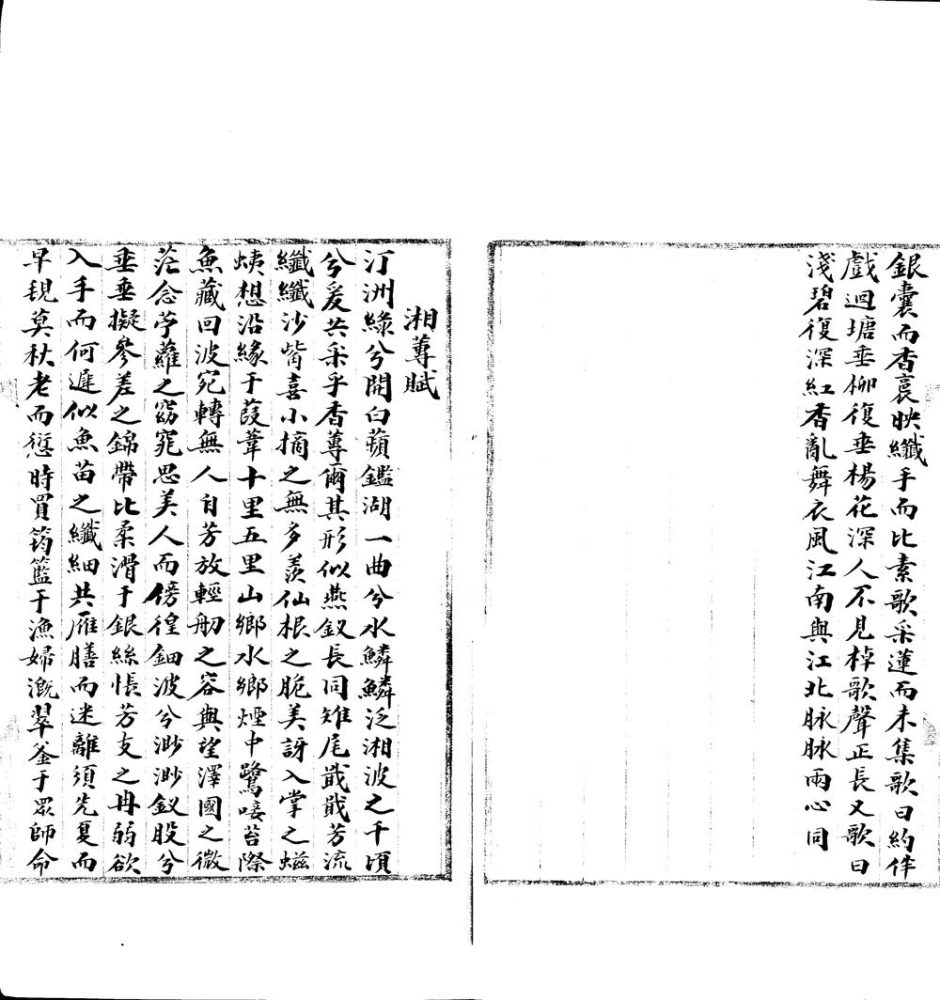 銀囊而香裛映纖手而比素歌采蓮而未集歌曰約伴
戲迴塘垂柳復垂楊花深人不見棹歌聲正長又歌曰
淺碧復深紅香亂舞衣風江南與江北脉脉兩心同
湘蓴賦
汀洲綠兮開白蘋鑑湖一曲兮水鱗鱗泛湘波之千頃
兮爰共采乎香蓴爾其形似燕釵長同雉尾戢戢芳流
纖纖沙觜喜小摘之無多羨仙根之脆美訝入掌之螆
蛦想沿緣于葭葦十里五里山鄉水鄉煙中鷺唼苔際
魚藏回波宛轉無人自芳放輕舠之容與望澤國之微
茫念苧蘿之窈窕思美人而傍徨鈿波兮渺渺釵股兮
垂垂擬參差之錦帶比柔滑于銀絲悵芳支之冉弱欲
入手而何遲似魚苗之纖細共雁膳而迷離須先夏而
早覘莫秋老而愆時買筠籃于漁婦溉翠釜于眾師命